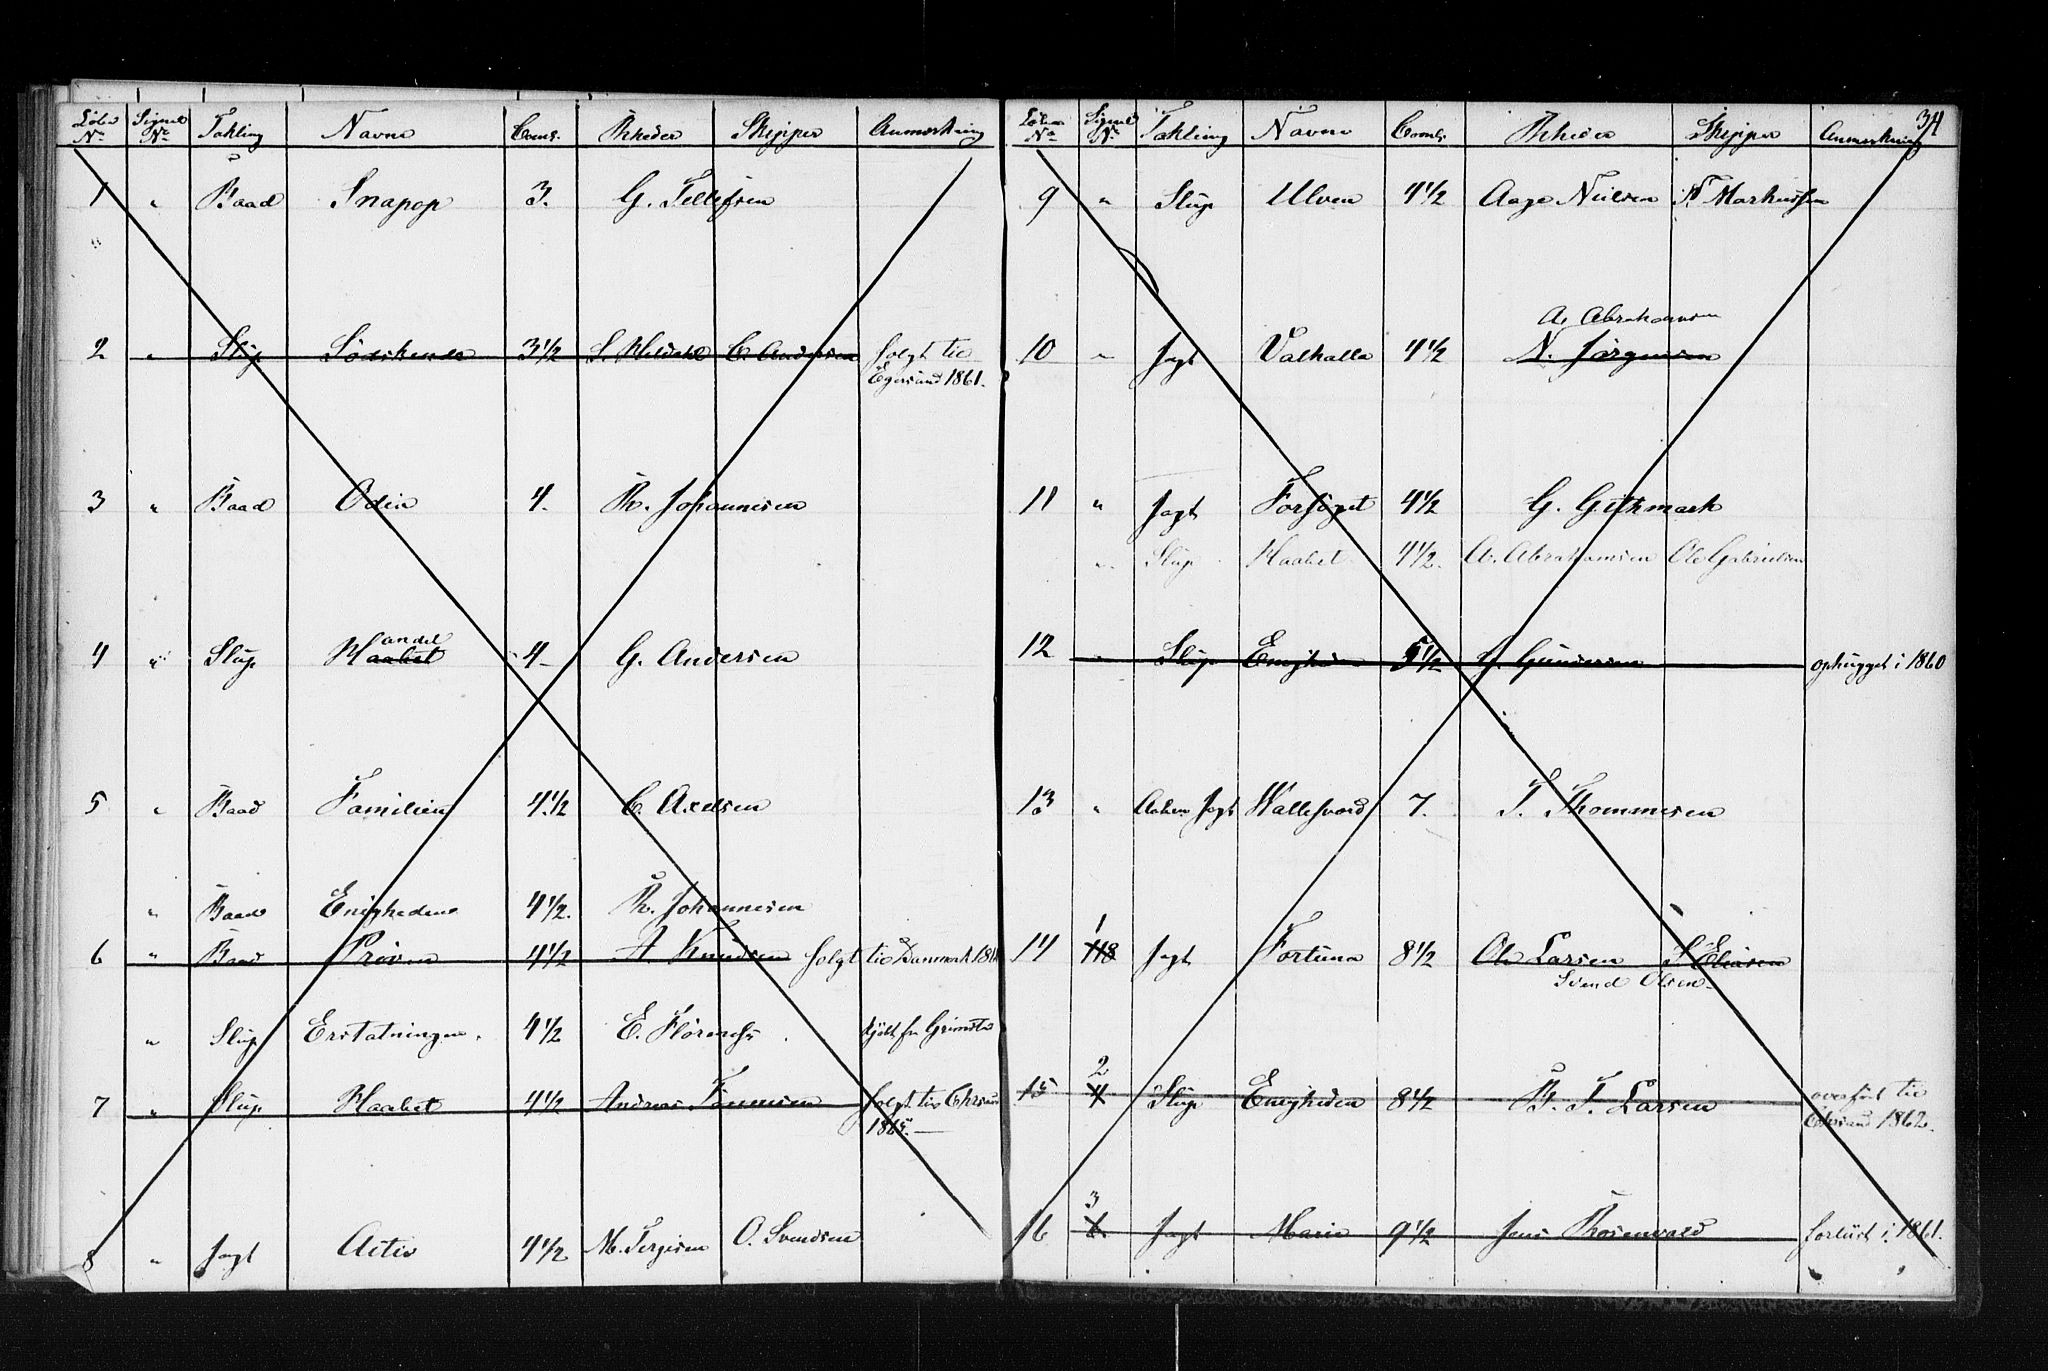 Løbe No Signal No Takling Navne Coms. Rheder Skipper Anmerkning
1 " Baad Snapop 3. G. Tellefsen
2 " Slup Sødskende 3½ S. Meldahl C. Andersen solgt til
Egersund 1861.
3 " Baad Odin 4. R. Johannesen
andel
4 " Slup Haabet 4 G. Andersen
5 " Baad Familien 4½ C. Axelsen
" Baad Enigheden 4½. R. Johannesen
6 " Baad Prøven 4½ A. Knudsen solgt til Danmark
" Slup Erstatningen. 4½ E. kjøbt fra Grimstad
7 " Slup Haabet 4½ Andreas Tønnesen solgt til
1865.
8 " Jagt Activ 4½ M. Terjesen O. Svendsen
34
Løbe No Signal No Takling Navne Coms. Rheder Skipper Anmerkning
9 " Slup Ulven 4½ Aage Nielsen N Markussen
A. Abrahamsen
10 " Jagt Valhalla 4½ N. Jørgensen
11 " Jagt Forsøget 4½ G. Githmark
" Slup Haabet 4½. A. Abrahamsen Ole Gabrielsen
12 " Slup Enigheden 5½ G. Gundersen ophugget i 1860
13 " Anker Jagt Hallesvard 7. T. Thommesen
1
14 118 Jagt Fortuna 8½ Ole Larsen S Eliasen
Svend Olsen
2
15 4 Slup Enigheden 8½ B. T. Larsen overført til
1862.
3
16 6 Jagt Maria 9½ Jens Rosenvold forliist i 1861.